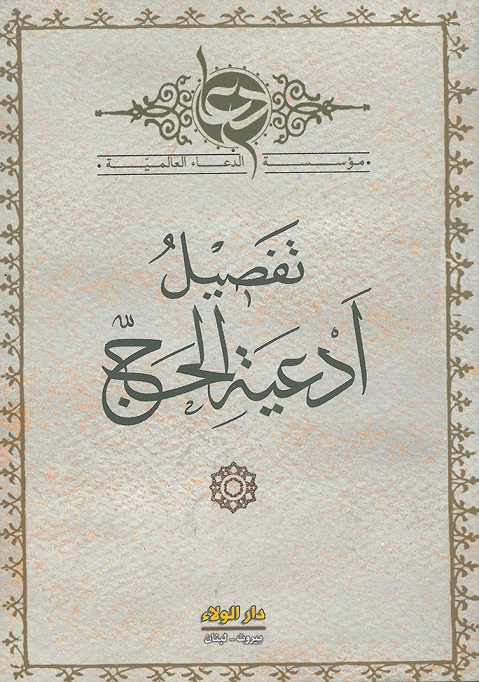 دعاء
• مؤسسة الدعاء العالميّة •
تَفصِيلُ
أَدْعيَةِ الحَجّ
دار الولاء
بيروت - لبنان